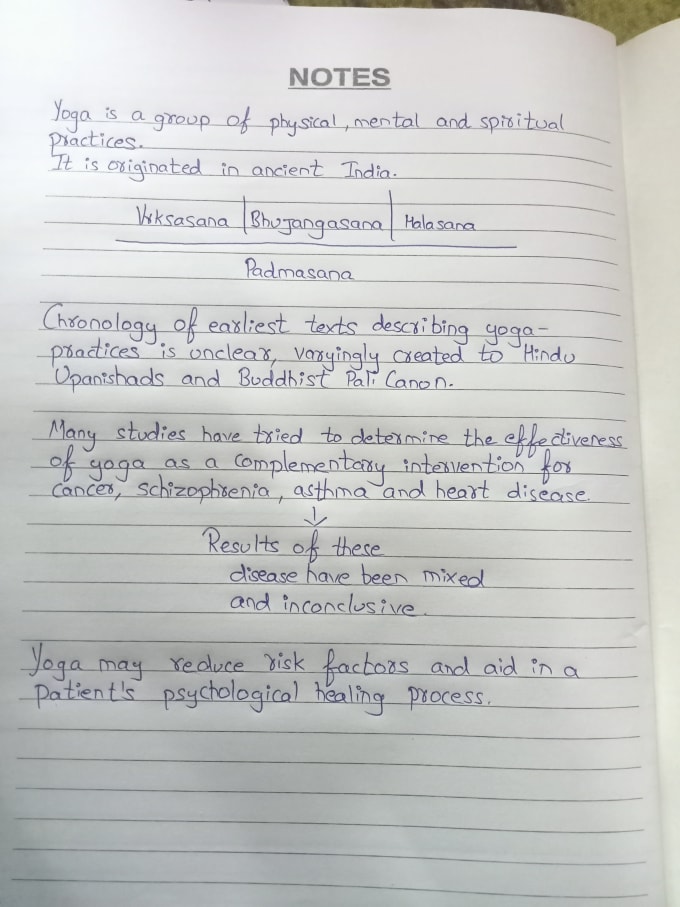 NOTES
Yoga is a group of physical, mental and spiritual
practices.
It is originated in ancient India.
Vrksasana | Bhujangasana | Halasana
Padmasana
Chronology of earliest texts describing yoga-
practices is unclear, varyingly created to Hindu
Upanishads and Buddhist Pali Canon.
Many studies have tried to determine the effectiveness
of yoga as a complementary intervention for
cancer, schizophrenia, asthma and heart disease.
↓
Results of these
disease have been mixed
and inconclusive.
Yoga may reduce risk factors and aid in a
patient's psychological healing process.